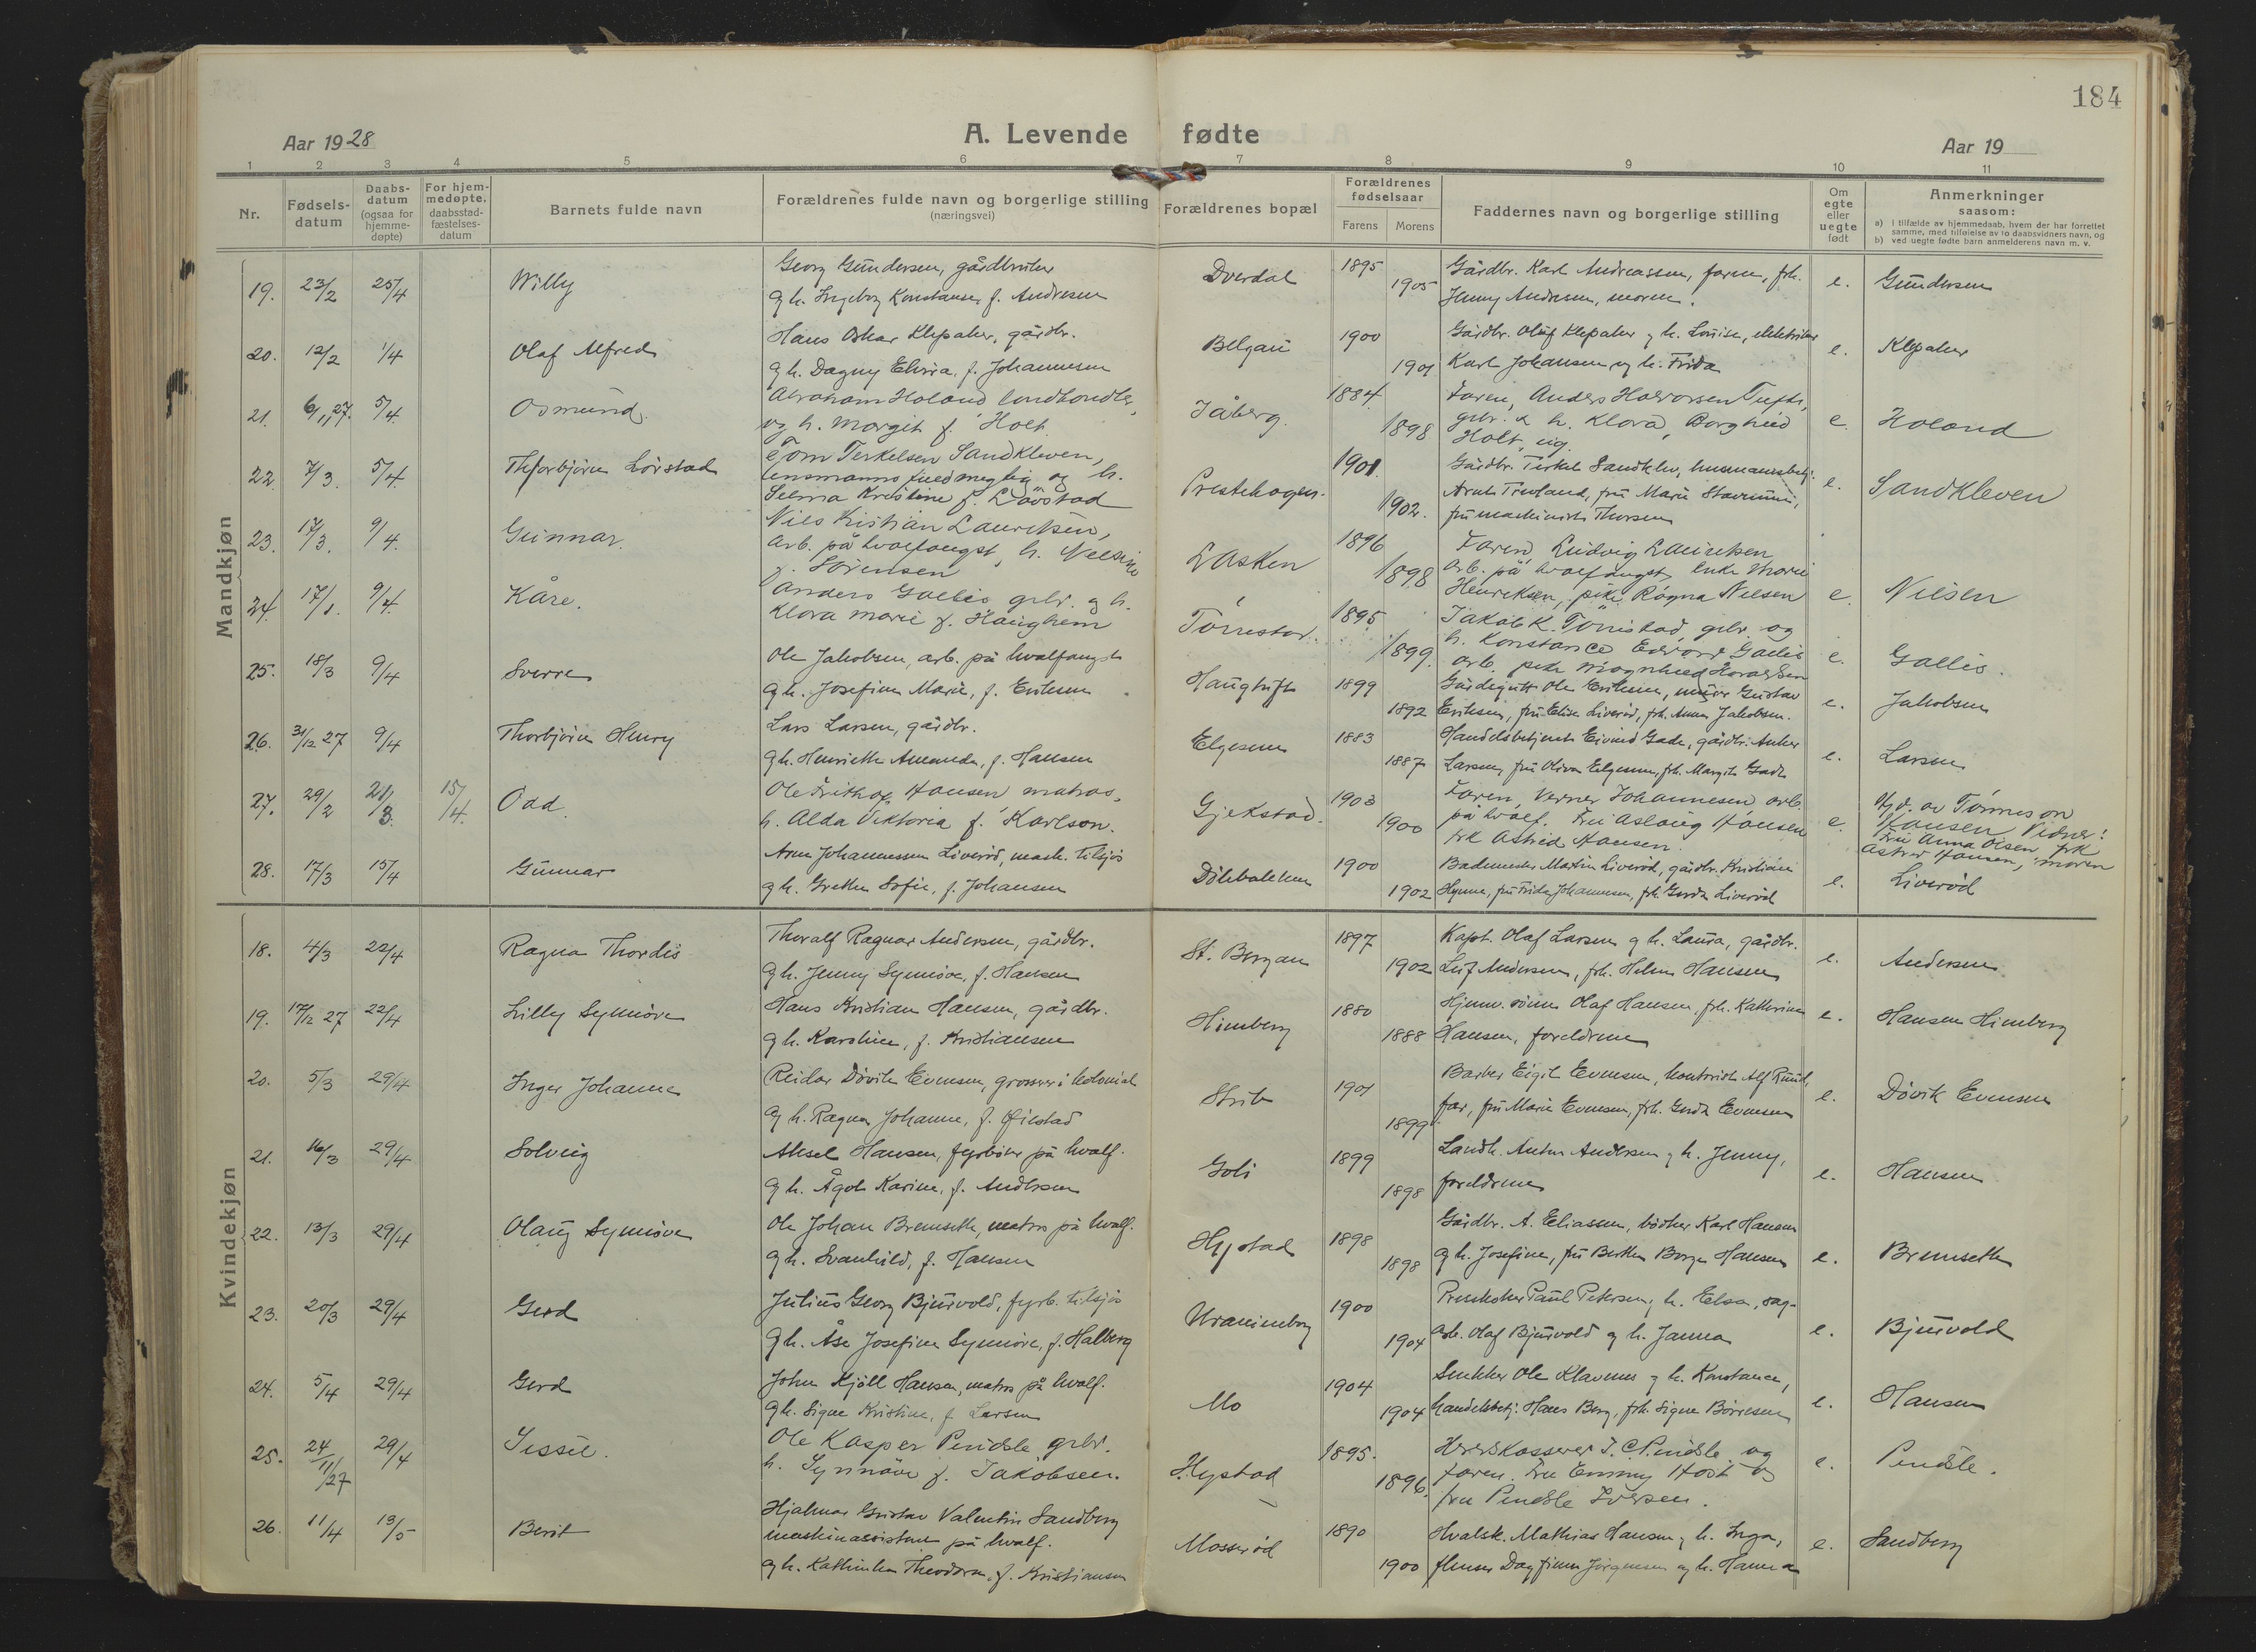 184
Aar 1928
A. Levende fødte
Aar 19
1 2 3 4 5 6 7 8 9 10 11
Nr.
Fødsels-
datum
Daabs-
datum
(ogsaa for
hjemme-
døpte)
For hjem-
medøpte.
daabsstad-
fæstelses-
datum
Barnets fulde navn
Forældrenes fulde navn og borgerlige stilling
(næringsvei)
Forældrenes bopæl
Forældrenes
fødselsaar
Farens Morens
Faddernes navn og borgerlige stilling
Om
egte
eller
uegte
født
Anmerkninger
saasom:
a) i tilfælde av hjemmedaab, hvem der har forrettet
samme, med tilføielse av to daabsvidners navn, og
b) ved uegte fødte barn anmelderens navn m. v.
Mandkjøn
19. 23/2 25/4 Willy
Georg Gundersen, gårdbruker
og h. Ingeborg Konstanse f. Andresen
Dverdal 1895 1905
Gårdbr. Karl Andreassen, faren, frk.
Jenny Andresen, moren.
e. Gundersen
20. 12/2 1/4 Olaf Alfred
Hans Oskar Klepaker, gårdbr.
og h. Dagny Elvira, f. Johannesen
Belgau 1900 1901
Gårdbr. Oluf Klepaker og h. Louise, elektriker
Karl Johansen og h. Frida
e. Klepaker
21. 6/1,27. 5/4. Osmund.
Abraham Holand landhandler,
og h. Margit f. Holt.
Jåberg. 1884. 1898
Faren, Anders Halvorsen Tufte,
grbr. & h. Klara, Borghild
Holt, ug.
e. Holand
22 7/3. 5/4. Thorbjørn Lövstad
Tom Terkelsen Sandkleven,
lensmannsfuldmegtig og h.
Selma Kristine f. Lövstad
Prestehagen. 1901. 1902.
Gårdbr. Terkel Sandklev,
fru maskinist Thorsen
e. Sandkleven
23. 17/3. 9/4. Gunnar.
Nils Kristian Lauritsen,
arb. på hvalfangst, h.
f. Sörensen
Lasken 1896 1898
Faren, Ludvig Lauritsen
arb. på hvalfangst, enke Marie
Henriksen, pike Ragna Nilsen
e. Nilsen
24. 17/1. 9/4. Kåre.
Anders Gallis grbr. og h.
Klara Marie f. Haughem
Törrestad. 1895 1899.
Jakob K. Törrestad, grbr. og
h. Konstance Edvard Gallis
arb. pike Magnhild Haraldsen
e. Gallis.
25. 18/3 9/4 Sverre
Ole Jakobsen, arb. på hvalfangst
og h. Josefine Marie, f. Eriksen
Haugtuft 1899 1892
Gårdsgutt Ole Eriksen, murer Gustav
Eriksen, fru Elise Liverød, frk. Anna Jakobsen.
e. Jakobsen
26. 31/12 27 9/4 Thorbjørn Henry
Lars Larsen, gårdbr.
og h. Henriette Amanda, f. Hansen
Elgesem 1883 1887
Handelsbetjent Eivind Gade, gårdbr. Anker
Larsen, fru Oliva Elgesem, frk. Margit Gade
e. Larsen
27. 29/2 21/3. 15/4. Odd.
Ole Frithof Hansen, matros,
h. Alda Viktoria f. Karlson.
Gjekstad. 1903 1900
Faren, Verner Johannesen, arb.
på hvalf. Fru Aslaug Hansen
frk Astrid Hansen.
e. Hj.d. av Tønneson
Hansen. Vidner:
Fru Anna Olsen, frk
Astrid Hansen, moren
28. 17/3 15/4 Gunnar
Arne Johannessen Liverød, mask. tilsjøs
og h. Grethe Sofie, f. Johansen
Dölebakken 1900 1902
Bademester Martin Liverød, gårdbr. Kristian
Hynne, fru Frida Johannesen, frk. Gerda Liverød
e. Liverød
Kvindekjøn
18. 4/3 22/4 Ragna Thordis
Thoralf Ragnar Andersen, gårdbr.
og h. Jenny Synnøve, f. Hansen
St. Bergan 1897 1902
Kapt. Olaf Larsen og h. Laura, gårdbr.
Leif Andersen, frk. Helene Hansen
e. Andersen
19. 17/12 27 22/4 Lilly Synnøve
Hans Kristian Hansen, gårdbr.
og h. Karoline, f. Kristiansen
Himberg 1880 1888
Hjemv. sönn Olaf Hansen, frk. Kathrine
Hansen, foreldrene
e. Hansen Himberg
20. 5/3 29/4 Inger Johanne
Reidar Døvik Evensen, grosserer i kolonial
og h. Ragna Johanne, f. Øilstad
Strib 1901 1899
Barber Eigil Evensen, kontorist Alf Ruud,
far, fru Marie Evensen, frk. Gerda Evensen
e. Døvik Evensen
21. 16/3 29/4 Solveig
Aksel Hansen, fyrbøter på hvalf.
og h. Ågot Karine, f. Andersen
Goli 1899 1898
Landh. Anton Andersen og h. Jenny,
foreldrene
e. Hansen
22. 13/3 29/4 Olaug Synnøve
Ole Johan Bremseth, matros på hvalf.
og h. Svanhild, f. Hansen
Hystad 1898 1898
Gårdbr. A. Eliassen, bödker Karl Hansen
og h. Josefine, fru Berthe Borge Hansen
e. Bremseth
23. 20/3 29/4 Gerd
Julius Georg Bjuvold, fyrb. tilsjøs
og h. Åse Josefine Synnøve, f. Halberg
Uranienborg 1900 1904
Presskoker Paul Petersen, h. Elsa, sag-
arb. Olaf Bjuvold og h. Janna
e. Bjuvold
24. 5/4 29/4 Gerd
John Kjöll Hansen, matros på hvalf.
og h. Signe Kristine, f. Larsen
Mo 1904 1904
Snekker Ole Klavenes og h. Konstance,
handelsbetj. Hans Berg, frk. Signe Börresen
e. Hansen
25. 24/11/27 29/4 Sissil.
Ole Kasper Pindsle grbr.
h. Synnöve f. Jakobsen.
Hystad 1895. 1896.
Herredskasserer J. C. Pindsle og
faren. Fru Emmy Höst og
fru Pindsle Iversen.
e. Pindsle.
26. 11/4 13/5 Berit
Hjalmar Gustav Valentin Sandberg
maskinassistent på hvalf.
og h. Kathinka Theodora, f. Kristiansen
Mosserød 1890 1900
Hvalsk. Mathias Hansen og h. Inga,
flenser Dagfinn Jörgensen og h. Hanna
e. Sandberg